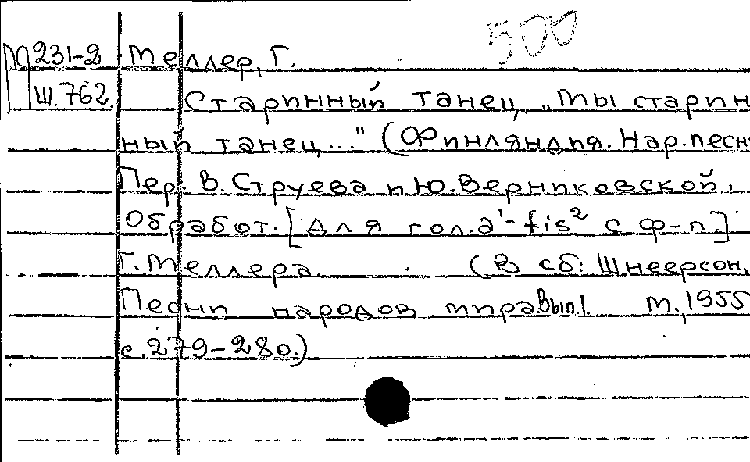 500
М 231-2 Меллер, Г.
Ш.762 Старинный танец „Ты старин
ный танец..." (Финляндия. Нар.песн
Пер. В.Струева и Ю.Верниковской.
Обработ. [для гол.a¹-fis² с ф-п.]
Г.Меллера. (В сб: Шнеерсон.
Песни народов мира Вып.1. М.,1955
с.279-280.)